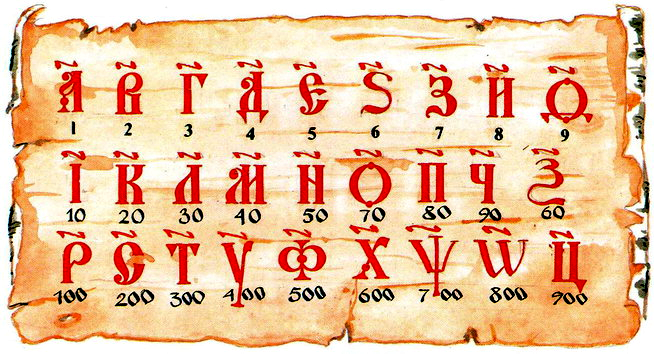 А҃ В҃ Г҃ Д҃ Є҃ Ѕ҃ З҃ И҃ Ѳ҃
1 2 3 4 5 6 7 8 9
І҃ К҃ Л҃ М҃ Н҃ Ѻ҃ П҃ Ч҃ Ѯ҃
10 20 30 40 50 70 80 90 60
Р҃ С҃ Т҃ У҃ Ф҃ Х҃ Ѱ҃ Ѡ҃ Ц҃
100 200 300 400 500 600 700 800 900